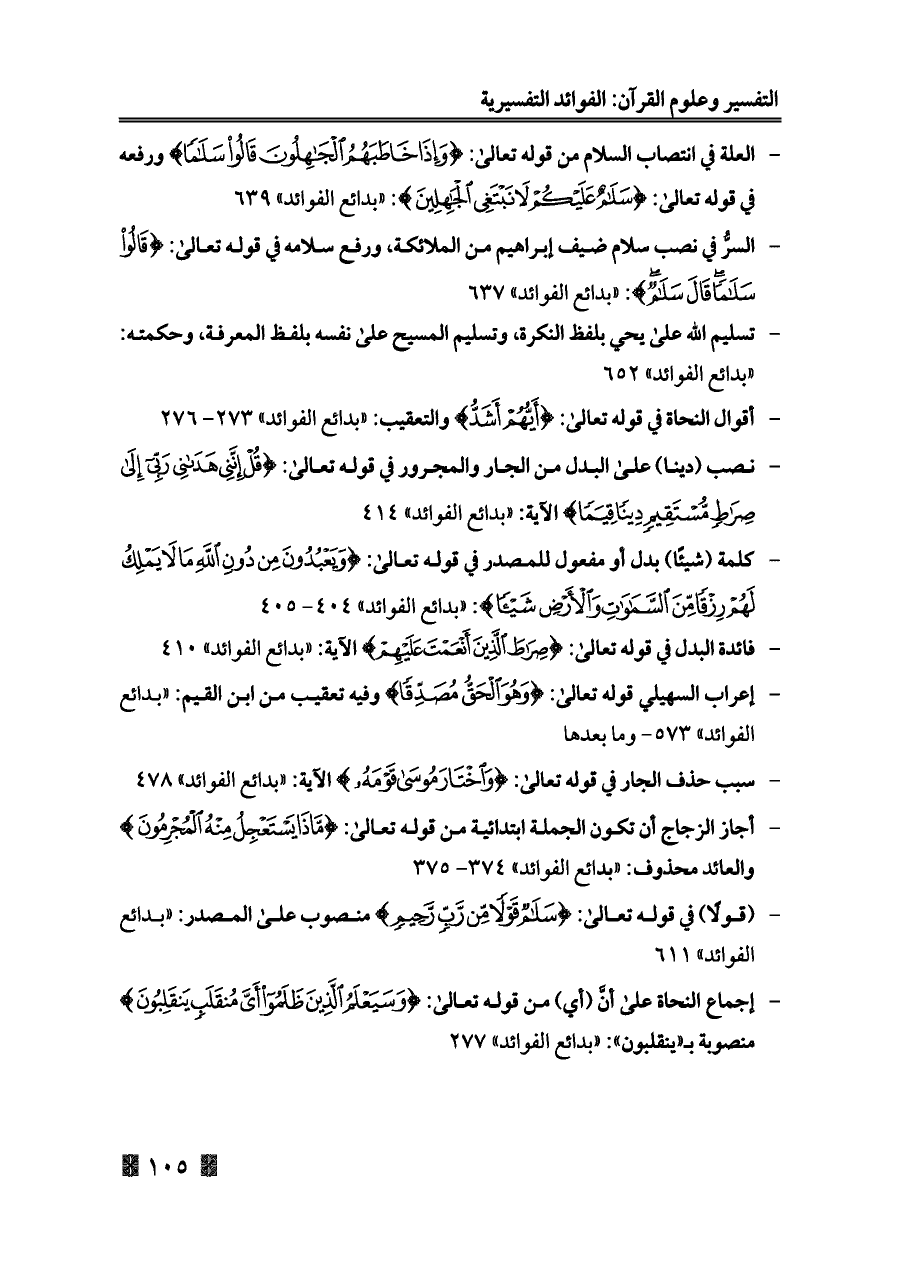 التفسير وعلوم القرآن: الفوائد التفسيرية
- العلة في انتصاب السلام من قوله تعالىٰ: ﴿وَإِذَا خَاطَبَهُمُ ٱلْجَٰهِلُونَ قَالُوا۟ سَلَٰمًا﴾ ورفعه
في قوله تعالىٰ: ﴿سَلَٰمٌ عَلَيْكُمْ لَا نَبْتَغِى ٱلْجَٰهِلِينَ﴾: «بدائع الفوائد» ٦٣٩
- السرُّ في نصب سلام ضيف إبراهيم من الملائكة، ورفع سلامه في قوله تعالىٰ: ﴿قَالُوا۟
سَلَٰمًا ۖ قَالَ سَلَٰمٌ ۖ﴾: «بدائع الفوائد» ٦٣٧
- تسليم الله علىٰ يحي بلفظ النكرة، وتسليم المسيح علىٰ نفسه بلفظ المعرفة، وحكمته:
«بدائع الفوائد» ٦٥٢
- أقوال النحاة في قوله تعالىٰ: ﴿أَيُّهُمْ أَشَدُّ﴾ والتعقيب: «بدائع الفوائد» ٢٧٣- ٢٧٦
- نصب (دينا) علىٰ البدل من الجار والمجرور في قوله تعالىٰ: ﴿قُلْ إِنَّنِى هَدَىٰنِى رَبِّىٓ إِلَىٰ
صِرَٰطٍ مُّسْتَقِيمٍ دِينًا قِيَمًا﴾ الآية: «بدائع الفوائد» ٤١٤
- كلمة (شيئًا) بدل أو مفعول للمصدر في قوله تعالىٰ: ﴿وَيَعْبُدُونَ مِن دُونِ ٱللَّهِ مَا لَا يَمْلِكُ
لَهُمْ رِزْقًا مِّنَ ٱلسَّمَٰوَٰتِ وَٱلْأَرْضِ شَيْـًٔا﴾: «بدائع الفوائد» ٤٠٤- ٤٠٥
- فائدة البدل في قوله تعالىٰ: ﴿صِرَٰطَ ٱلَّذِينَ أَنْعَمْتَ عَلَيْهِمْ﴾ الآية: «بدائع الفوائد» ٤١٠
- إعراب السهيلي قوله تعالىٰ: ﴿وَهُوَ ٱلْحَقُّ مُصَدِّقًا﴾ وفيه تعقيب من ابن القيم: «بدائع
الفوائد» ٥٧٣- وما بعدها
- سبب حذف الجار في قوله تعالىٰ: ﴿وَٱخْتَارَ مُوسَىٰ قَوْمَهُۥ﴾ الآية: «بدائع الفوائد» ٤٧٨
- أجاز الزجاج أن تكون الجملة ابتدائية من قوله تعالىٰ: ﴿مَّاذَا يَسْتَعْجِلُ مِنْهُ ٱلْمُجْرِمُونَ﴾
والعائد محذوف: «بدائع الفوائد» ٣٧٤- ٣٧٥
- (قولًا) في قوله تعالىٰ: ﴿سَلَٰمٌ قَوْلًا مِّن رَّبٍّ رَّحِيمٍ﴾ منصوب علىٰ المصدر: «بدائع
الفوائد» ٦١١
- إجماع النحاة علىٰ أنَّ (أي) من قوله تعالىٰ: ﴿وَسَيَعْلَمُ ٱلَّذِينَ ظَلَمُوٓا۟ أَىَّ مُنقَلَبٍ يَنقَلِبُونَ﴾
منصوبة بـ«ينقلبون»: «بدائع الفوائد» ٢٧٧
١٠٥